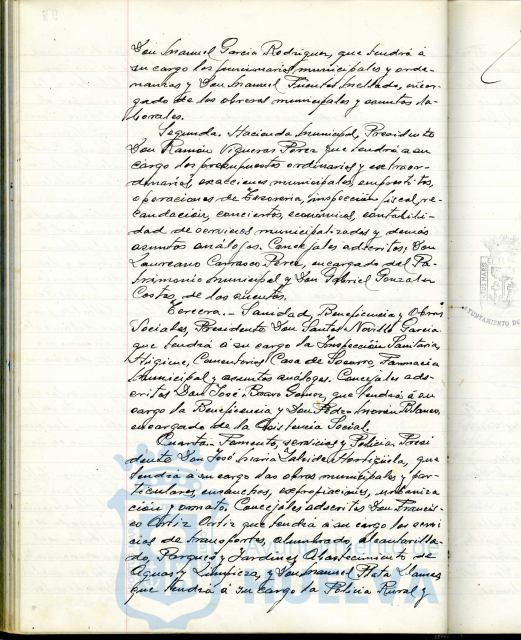 Don Manuel García Rodríguez, que tendrá á
su cargo los funcionarios municipales y orde-
nanzas y Don Manuel Fuentes Mellado, encar-
gado de los obreros municipales y asuntos la-
borales.
Segunda. Hacienda Municipal, Presidente
Don Ramón Vigueras Pérez que tendrá a su
cargo los presupuestos ordinarios y extraor-
dinarios, exacciones municipales, empréstitos,
operaciones de Tesorería, inspección fiscal, re-
caudación, conciertos, económicos, contabili-
dad de servicios municipalizados y demás
asuntos análogos. Concejales adscritos; Don
Laureano Carrasco Pérez, encargado del Pa-
trimonio Municipal y Don Gabriel González
Costas, de las cuentas.
Tercera.- Sanidad, Beneficencia y Obras
Sociales, Presidente Don Santos Novillo García
que tendrá a su cargo la Inspección Sanitaria,
Higiene, Cementerios, Casa de Socorro, Farmacia
Municipal y asuntos análogos. Concejales ads-
critos Don José Bravo Gómez, que tendrá á su
cargo la Beneficencia y Don Pedro Morón Blanco,
encargado de la Asistencia Social.
Cuarta.- Fomento, servicios y Policía, Presi
dente Don José María Hortigüela, que
tendrá á su cargo las obras municipales y par-
ticulares, ensanches, expropiaciones, urbaniza
ción y ornato. Concejales adscritos Don Francis-
co Ortiz Ortiz que tendrá á su cargo los servi
cios de transportes, alumbrado, alcantarilla-
do, Parques y Jardines, Abastecimiento de
Aguas y Limpieza, y Don Manuel Plata Llanes
que tendrá á su cargo la Policía Rural y
AYUNTAMIENTO DE
HUELVA